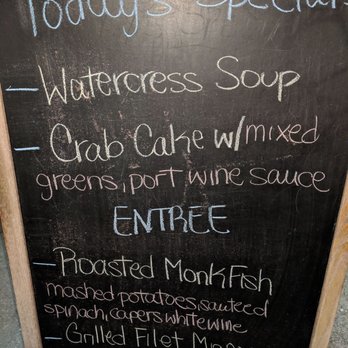 Today's Specials
- Watercress Soup
- Crab Cake w/mixed
greens, port wine sauce
ENTREE
- Roasted MonkFish
mashed potatoes, sauteed
spinach, capers white wine
- Grilled Filet